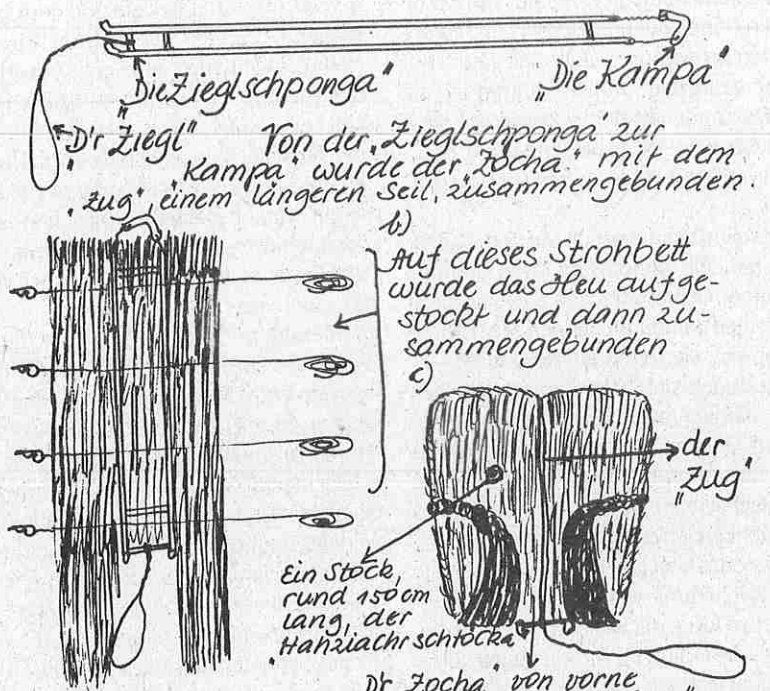 „Die Zieglschponga"
„Die Kampa"
„D'r Ziegl"
Von der „Zieglschponga" zur
„Kampa" wurde der „Zocha" mit dem
„Zug", einem längeren Seil, zusammengebunden.
b)
Auf dieses Strohbett
wurde das Heu aufge-
stockt und dann zu-
sammengebunden
c)
der
„Zug"
Ein Stock,
rund 150 cm
lang, der
„Hahziachrschtocka"
„D'r Zocha" von vorne